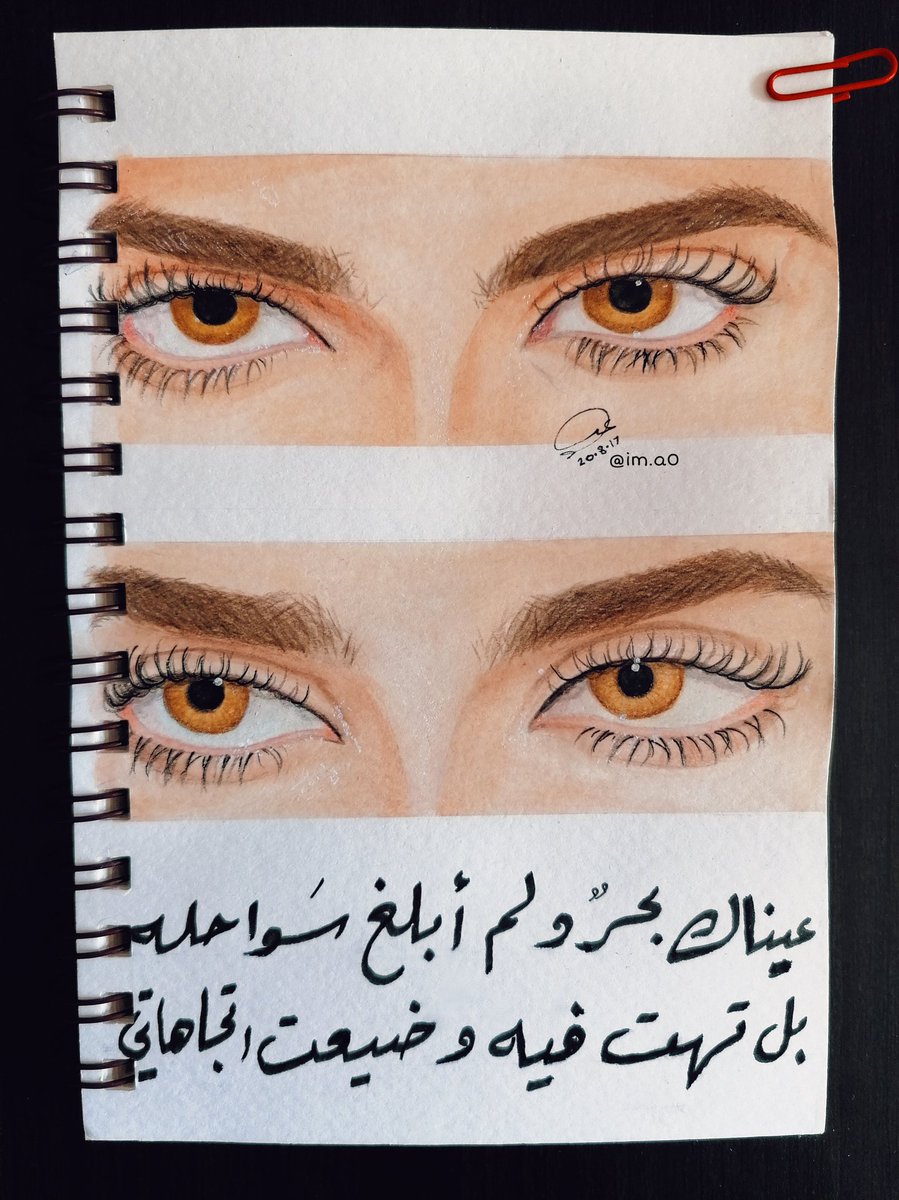 20.8.17
@im.a0
عيناك بحرٌ ولم أبلغ سَواحله
بل تهت فيه وضيعت اتجاهاتي